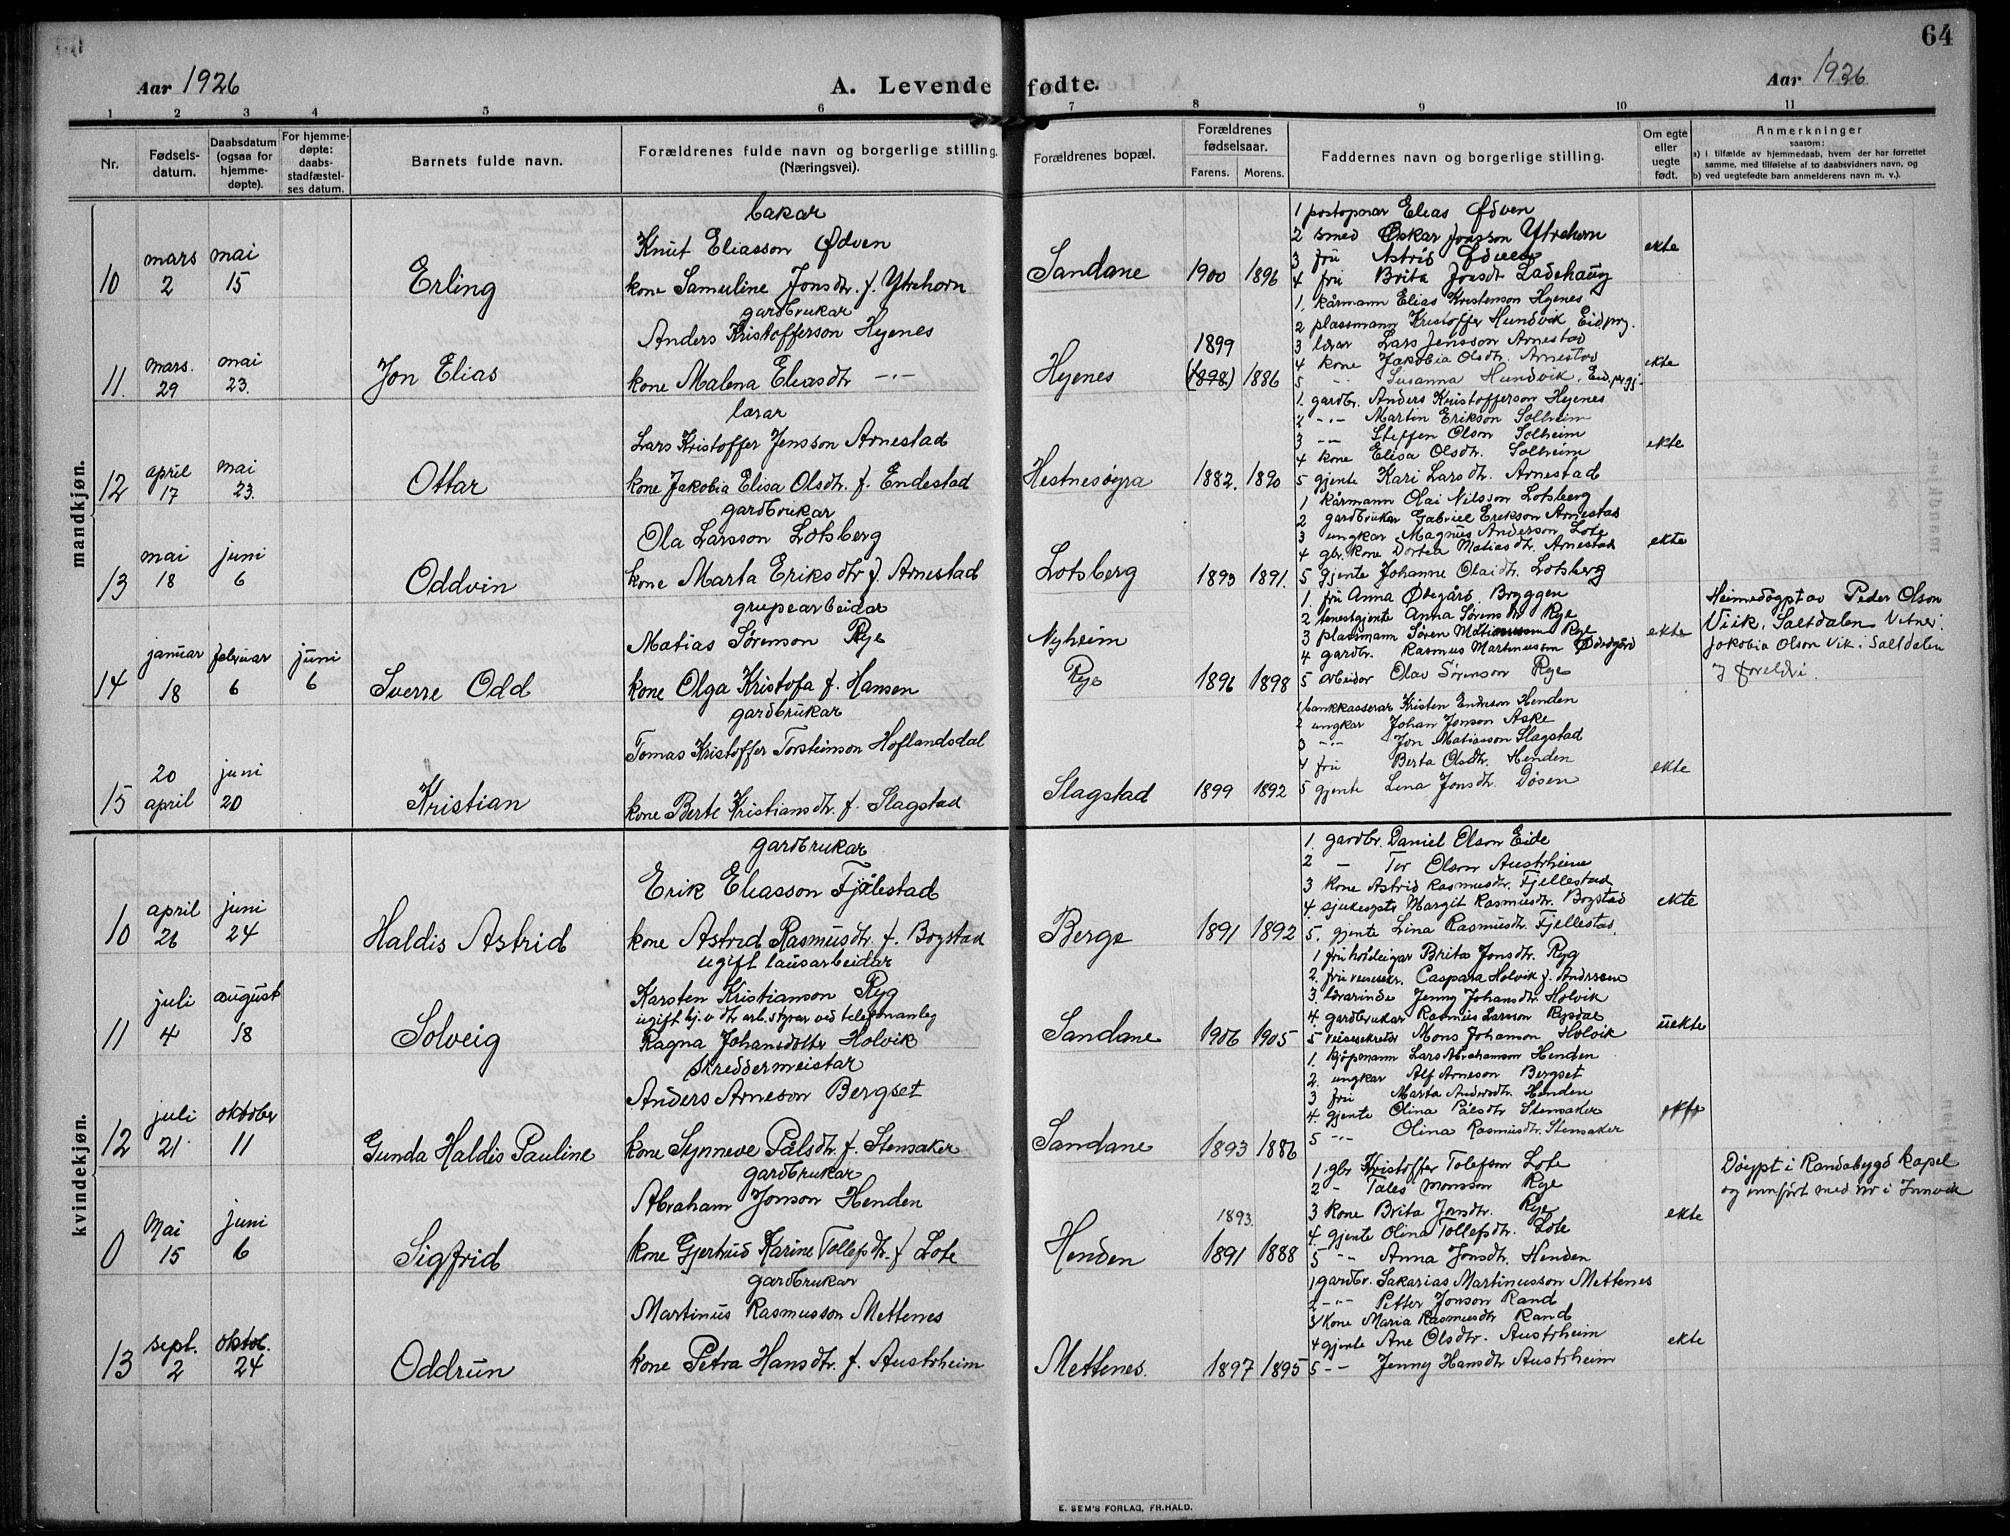 64
Aar 1926
A. Levendefødte.
Aar 1926
1 2 3 4 5 6 7 8 9 10 11
Nr.
Fødsels-
datum.
Daabsdatum
(ogsaa for
hjemme-
døpte).
For hjemme-
døpte:
daabs-
stadfæstel-
ses datum.
Barnets fulde navn.
Forældrenes fulde navn og borgerlige stilling.
(Næringsvei).
Forældrenes bopæl.
Forældrenes
fødselsaar.
Farens. Morens.
Faddernes navn og borgerlige stilling.
Om egte
eller
uegte
født.
Anmerkninger
saasom:
a) i tilfælde av hjemmedaab, hvem der har forrettet
samme, med tilføielse af to daabsvidners navn, og
b) ved uegtefødte barn anmelderens navn m. v.).
mandkjøn.
10
mars
2
mai
15
Erling
bakar
Knut Eliasson Ødven
kone Samuline Jonsdtr. f. Ytrehorn
Sandane
1900 1896
1 postopnar Elias Ødven
2 smed Oskar Jonsson Ytrehorn
3 fru Astrid Ødven
4 fru Brita Jonsdt Ladehaug
ekte
11.
mars.
29
mai
23.
Jon Elias
gardbrukar
Anders Kristofferson Hyenes
kone Malena Eliasdtr —"—
Hyenes
1899
(1898) 1886
1. kårmann Elias Kristenson Hyenes
2 plassmann Kristoffer Hundvik Eid prg.
3 lærar Lars Jensson Arnestad
4 kone Jakobia Olsdtr. Arnestad
5 Susanna Hundvik, Eid prgj.
ekte
12
april
17
mai
23.
Ottar
lærar
Lars Kristoffer Jensson Arnestad
kone Jakobia Elisa Olsdtr. f. Endestad
Hestnesøyra
1882. 1890
1. gardbr. Anders Kristofferson Hyenes
2 —"— Martin Erikson Solheim
3 —"— Steffen Olson Solheim
4 kone Elisa Olsdtr. Solheim
5 gjente Kari Larsdtr. Arnestad
ekte
13
mai
18
juni
6
Oddvin
gardbrukar
Ola Larsson Lotsberg
kone Marta Eriksdtr f. Arnestad
Lotsberg
1893 1891.
1 kårmann Olai Nilsson Lotsberg
2 gardbrukar Gabriel Erikson Arnestad
3 ungkar Magnus Anderson Lote
4 gbr. kone Dortea Matiasdtr. Arnestad
5 gjente Johanne Olaidtr. Lotsberg
ekte
14
januar
18
februar
6
juni
6
Sverre Odd
grupearbeidar
Matias Sørenson Rye
kone Olga Kristofa f. Hansen
Nyheim
Rye
1896 1898
1. fru Anna Ødegård Bryggen
2 tenestgjente Anna Sørensdtr Rye
3 plassmann Søren Rye
4 gardbr. Rasmus Martinusson Ødegård
5 arbeidar Olav Sørenson Rye
ekte
Heimedøypt av Peder Olson
Viik, Saltdalen Vitner:
Jakobia Olson Vik, Saltdalen
og foreldri.
15
20
april
juni
20
Kristian
gardbrukar
Tomas Kristoffer Torsteinson Hoflandsdal
kone Berte Kristiansdtr. f. Slagstad
Slagstad
1899 1892
1 bankkasserar Kristen Henden
2 ungkar Johan Jonson Aske
3 —"— Jon Matiasson Slagstad
4 fru Berta Olsdtr. Henden
5 gjente Lina Jonsdtr. Døsen
ekte
kvindekjøn.
10
april
26
juni
24
Haldis Astrid
gardbrukar
Erik Eliasson Fjælestad
kone Astrid Rasmusdtr. f. Bogstad
Berge
1891 1892
1. gardbr. Daniel Olson Eide
2 — Tor Olson Austrheim
3 kone Astrid Rasmusdtr. Fjellestad
4. sjukesyster Margit Rasmusdtr. Bogstad
5. gjente Lina Rasmusdtr. Fjellestad.
ekte
11
juli
4
august
18
Solveig
ugift lausarbeidar
Karsten Kristianson Ryg
ugift hj. v dtr arb. styrar ved telefonanleg
Ragna Johansdotter Holvik
Sandane
1906 1905
1 fru hoteleigar Brita Jonsdtr. Ryg
2. fru reisesekr. Caspara Holvik f. Andersen
3. lærarinde Jenny Johansdtr. Holvik
4. gardbrukar Rasmus Larsson Rysdal
5 reisesekretær Mons Johanson Holvik
uekte
12
juli
21.
oktober
11
Gunda Haldis Pauline
skreddermeistar
Anders Arneson Bergset
kone Synneve Pålsdtr. f. Stensaker
Sandane
1893 1886
1. kjøpmann Lars Abrahamson Henden
2. ungkar Alf Arneson Bergset
3 fru Marta Andersdtr. Henden
4. gjente Olina Pålsdtr Stensaker
5 —"— Olina Rasmusdtr. Stensaker
ekte
0
Mai
15
juni
6
Sigfrid
gardbrukar
Abraham Jonson Henden
kone Gjertrud Karine Tollefsdtr. f Lote
Henden
1893.
1891 1888
1 gbr Kristoffer Tolefson Lote
2 — Tales Monsson Rye
3 kone Brita Jonsdtr. Rye
4. gjente Olina Tollefsdtr. Lote
5 —"— Anna Jonsdtr. Henden
ekte
Døypt i Randabygd kapel
og innført med nr i Innvik
13
sept.
2
oktob.
24
Oddrun
gardbrukar
Martinus Rasmusson Mettenes
kone Petra Hansdtr. f. Austrheim
Mettenes.
1897 1895
1 gardbr. Sakarias Martinusson Mettenes
2 —"— Petter Jonson Rand
3 kone Maria Rasmusdtr Rand
4 gjente Ane Olsdtr. Austrheim
5 —"— Jenny Hansdtr Austrheim
ekte
E. SEM'S FORLAG, FR.HALD.